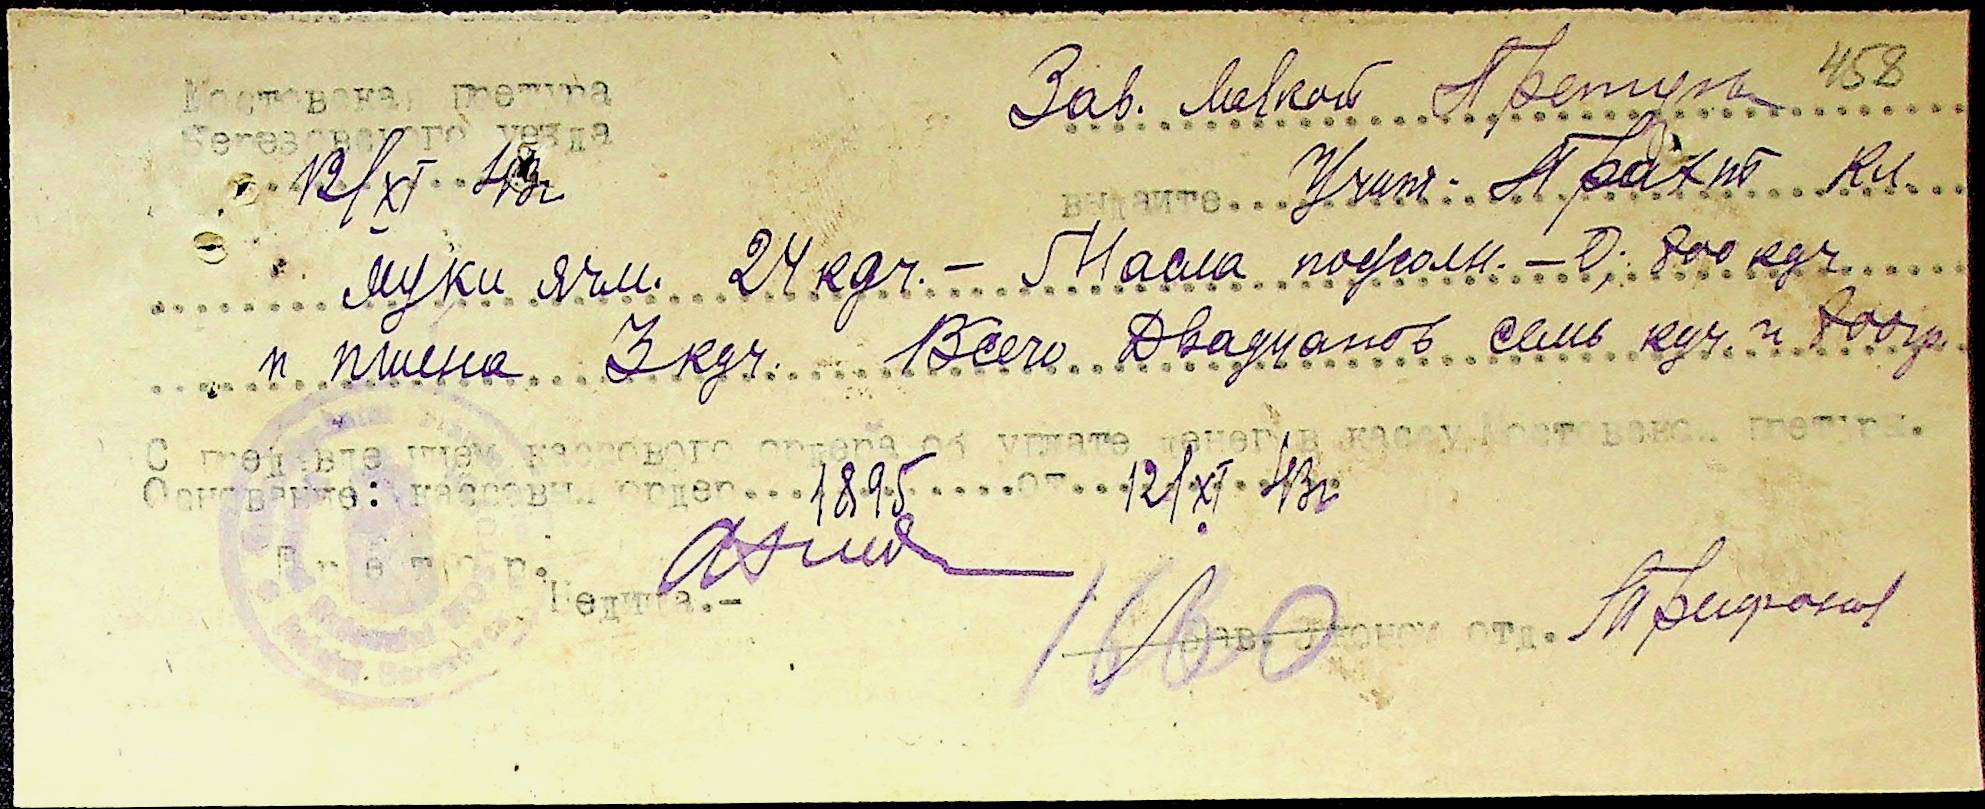 458
Мостовская претура
Березовского уезда
Зав. лавкой Претуры
12/XI 43г
выдайте Учит. Кл.
Муки ячм. 24 кгч. — Масла подсолн. — 0,800 кгч
и пшена 3 кгч. Всего Двадцать семь кгч. и 800гр.
С предъявлением кассового ордера об уплате денег в кассу Мостовской претуры.
Основание: кассовый ордер 1895 от 12/XI 43г
Претор.
1660
Зав. Эконом отд. Трифонов